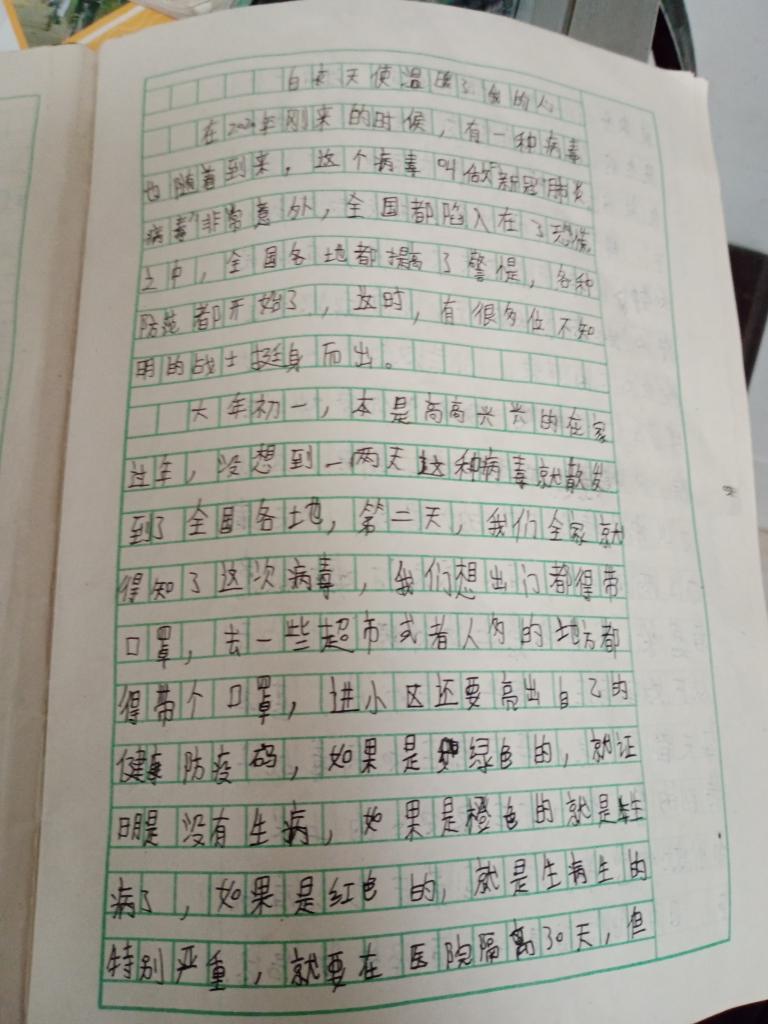 白衣天使温暖了我的人
在2020年刚来的时候，有一种病毒
也随着到来，这个病毒叫做"新冠肺炎
病毒"非常意外，全国都陷入在了恐慌
之中，全国各地都提高了警惕，各种
防范都开始了，这时，有很多位不知
明的战士挺身而出。
大年初一，本是高高兴兴的在家
过年，没想到一两天这种病毒就散发
到了全国各地，第二天，我们全家就
得知了这次病毒，我们想出门都得带
口罩，去一些超市或者人多的地方都
得带个口罩，进小区还要亮出自己的
健康防疫码，如果是绿色的，就证
明是没有生病，如果是橙色的就是生
病了，如果是红色的，就是生病生的
特别严重，就要在医院隔离30天，但